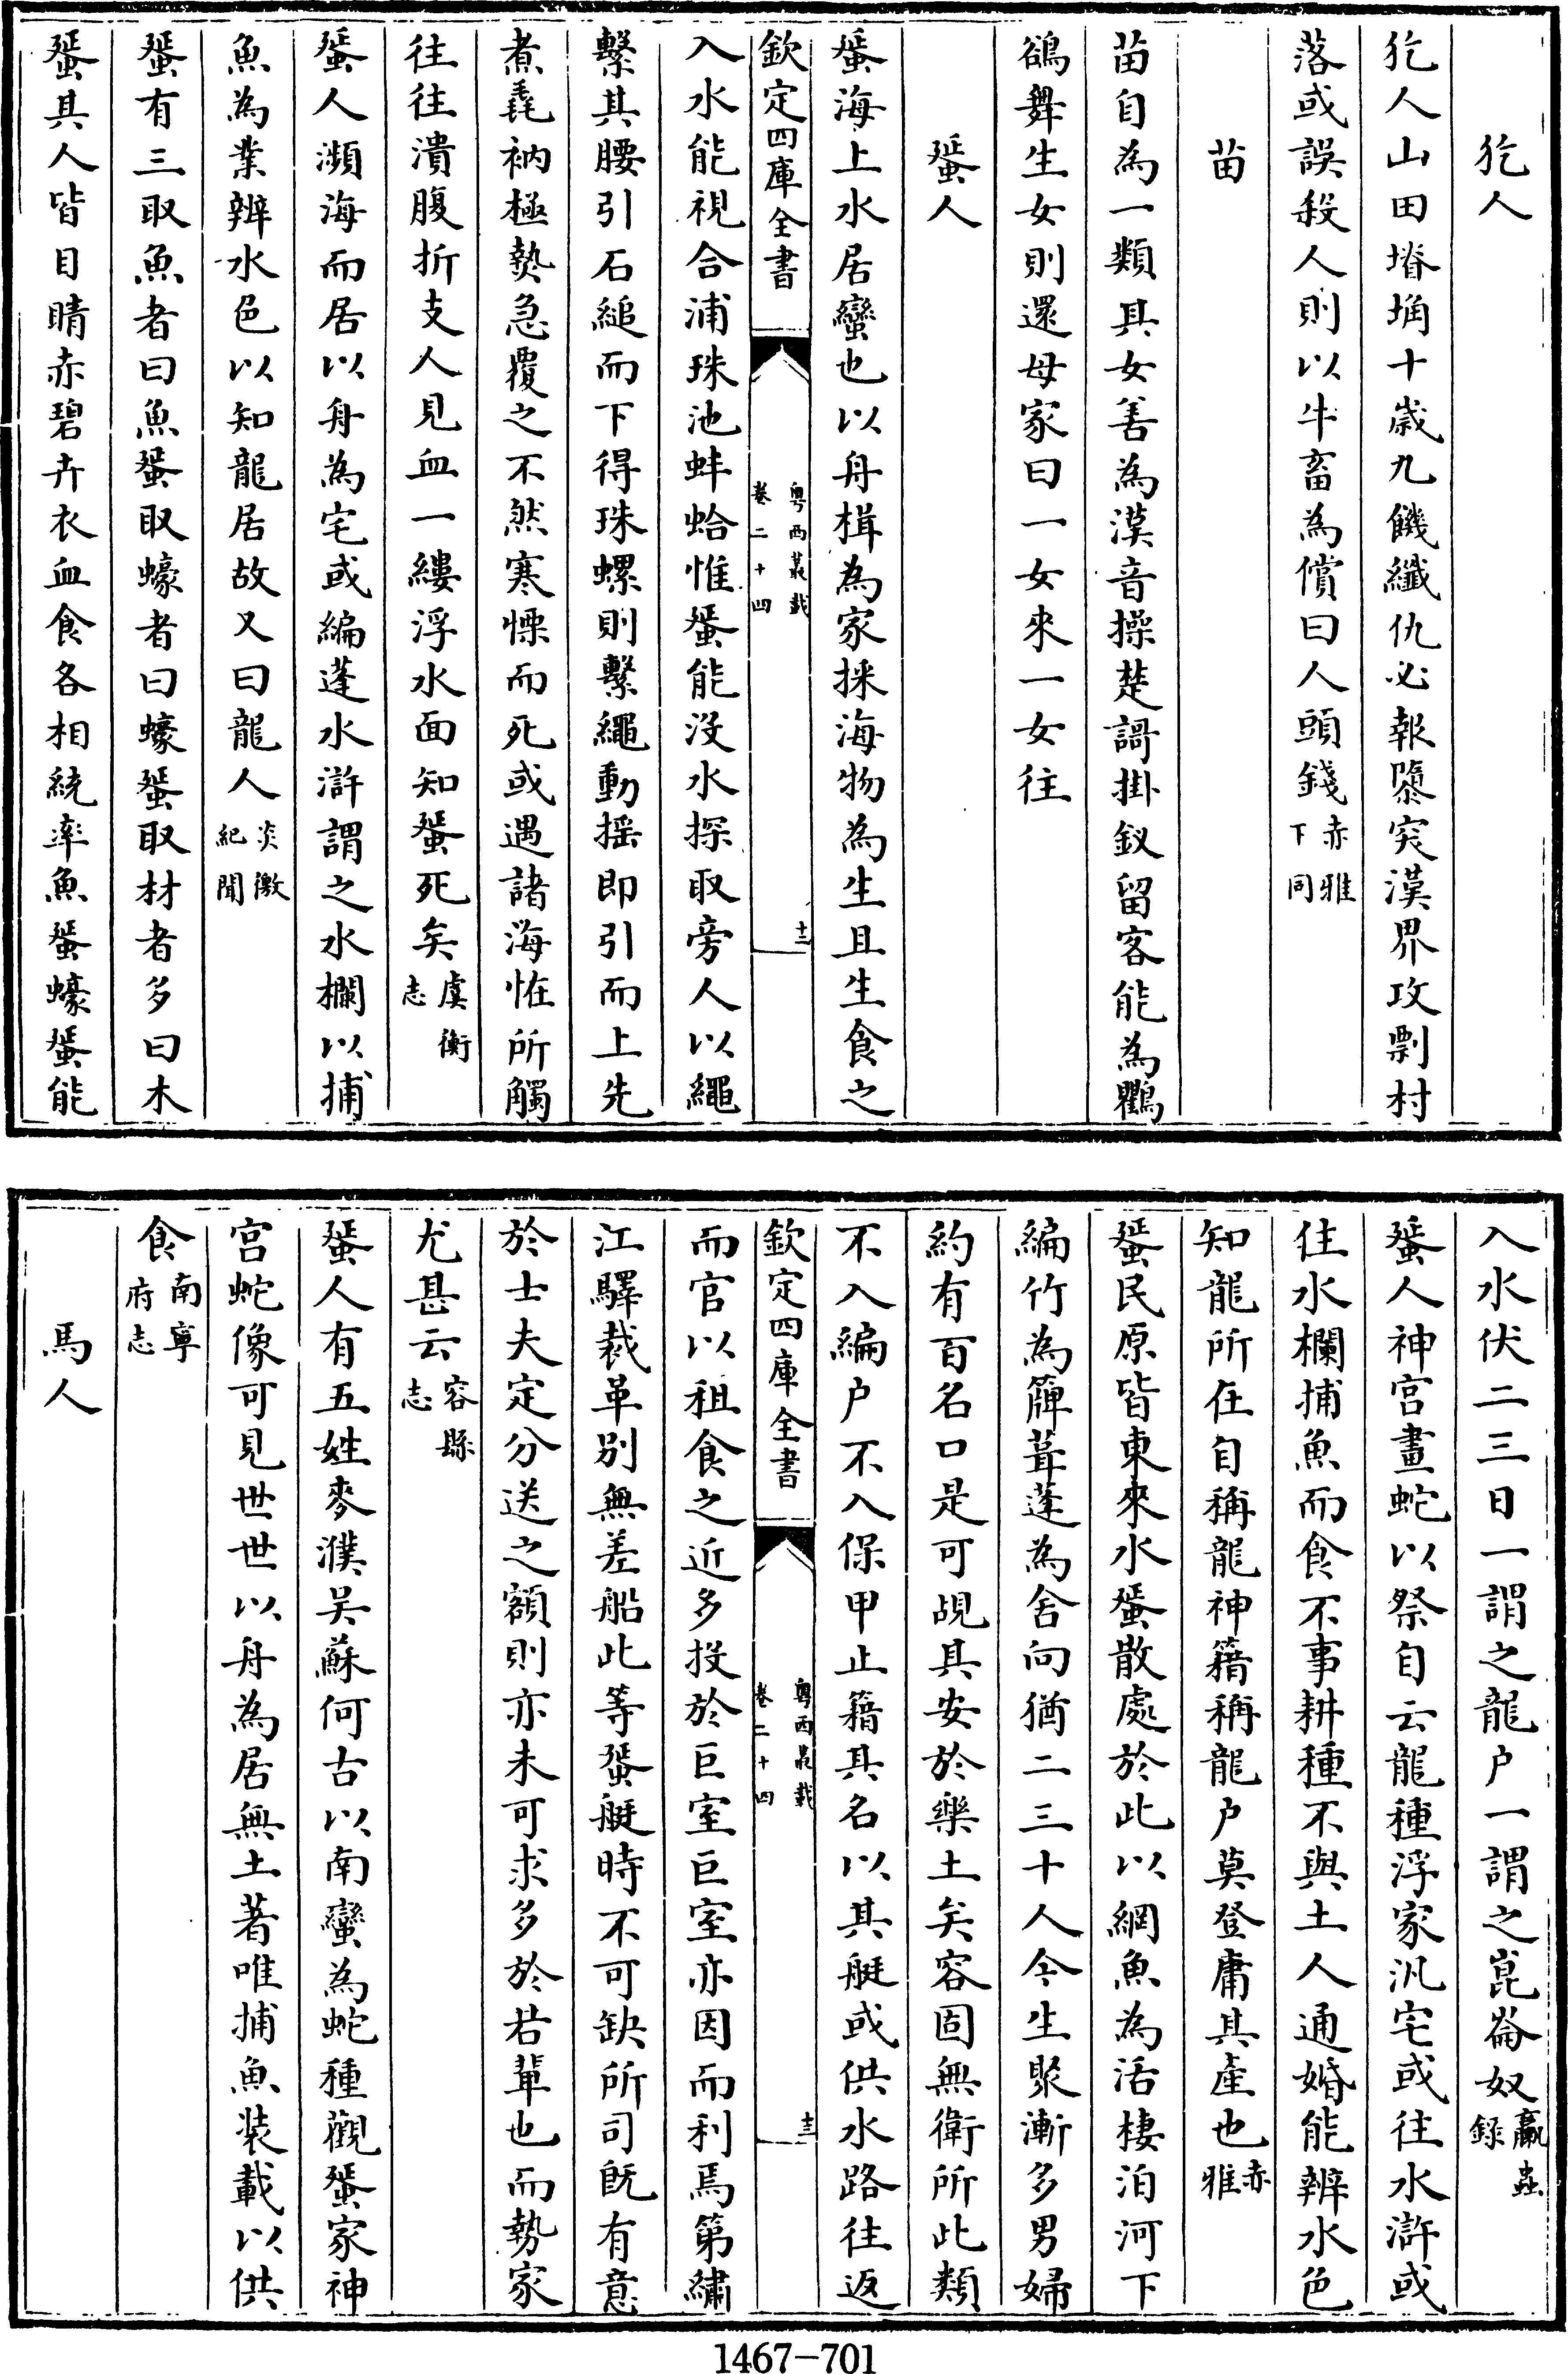 犵人
犵人山田塉埆十歲九饑纖仇必報隳突漢界攻剽村
落或誤殺人則以牛畜為償曰人頭錢赤雅下同
苗
苗自為一類其女善為漢音操楚謌掛釵留客能為鸜
鵒舞生女則還母家曰一女來一女往
蜑人
蜑海上水居蠻也以舟楫為家採海物為生且生食之
欽定四庫全書
粤西叢載
卷二十四
十三
入水能視合浦珠池蚌蛤惟蜑能没水探取旁人以繩
繫其腰引石縋而下得珠螺則繫繩動摇即引而上先
煮毳衲極𤍠急覆之不然寒慄而死或遇諸海恠所觸
往往潰腹折支人見血一縷浮水面知蜑死矣虞衡志
蜑人瀕海而居以舟為宅或編蓬水滸謂之水欄以捕
魚為業辨水色以知龍居故又曰龍人炎徼紀聞
蜑有三取魚者曰魚蜑取蠔者曰蠔蜑取材者多曰木
蜑其人皆目睛赤碧卉衣血食各相統率魚蜑蠔蜑能
入水伏二三日一謂之龍户一謂之崑崙奴臝蟲錄
蜑人神宫畫蛇以祭自云龍種浮家汎宅或往水滸或
住水欄捕魚而食不事耕種不與土人通婚能辨水色
知龍所在自稱龍神籍稱龍户莫登庸其產也赤雅
蜑民原皆東來水蜑散處於此以網魚為活棲泊河下
編竹為簰葺蓬為舍向猶二三十人今生聚漸多男婦
約有百名口是可覘其安於樂土矣容固無衛所此類
不入編户不入保甲止籍其名以其艇或供水路往返
欽定四庫全書
粤西叢載
卷二十四
十三
而官以租食之近多投於巨室巨室亦因而利焉第繡
江驛裁革别無差船此等蜑艇時不可缺所司既有意
於士夫定分送之額則亦未可求多於若輩也而勢家
尤甚云容縣志
蜑人有五姓麥濮吴蘇何古以南蠻為蛇種觀蜑家神
宫蛇像可見世世以舟為居無土著唯捕魚装載以供
食南寧府志
馬人
1467-701